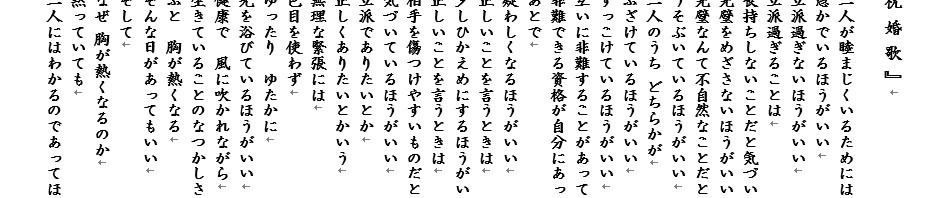 祝婚歌』
二人が睦まじくいるためには
愚かでいるほうがいい
立派過ぎないほうがいい
立派過ぎることは
長持ちしないことだと気づい
完璧をめざさないほうがいい
完璧なんて不自然なことだと
うそぶいているほうがいい
二人のうち どちらかが
ふざけているほうがいい
ずっこけているほうがいい
互いに非難することがあって
非難できる資格が自分にあっ
あとで
疑わしくなるほうがいい
正しいことを言うときは
少しひかえめにするほうがい
正しいことを言うときは
相手を傷つけやすいものだと
気づいているほうがいい
立派でありたいとか
正しくありたいとかいう
無理な緊張には
色目を使わず
ゆったり ゆたかに
光を浴びているほうがいい
健康で 風に吹かれながら
生きていることのなつかしさ
ふと 胸が熱くなる
そんな日があってもいい
そして
なぜ 胸が熱くなるのか
黙っていても
二人にはわかるのであってほ